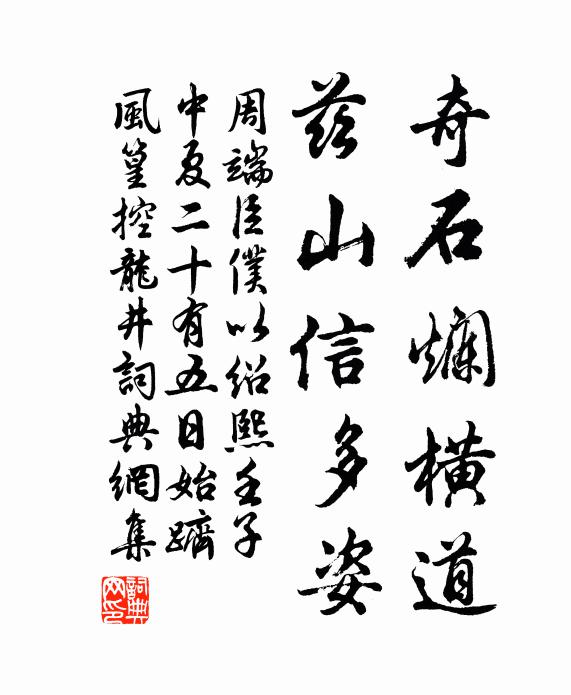 奇石爛橫道
茲山信多姿
周端臣僕以紹熙壬子
中夏二十有五日始躋
風篁控龍井詞典網集
詞典网印